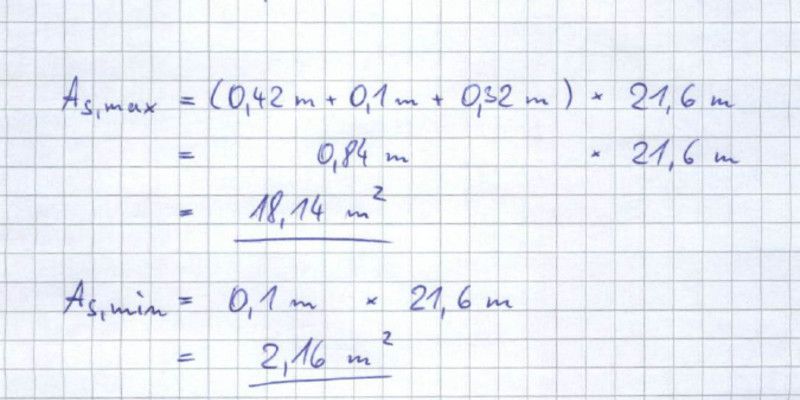 A_s,max = (0,42 m + 0,1 m + 0,32 m) × 21,6 m
= 0,84 m × 21,6 m
= 18,14 m²
A_s,min = 0,1 m × 21,6 m
= 2,16 m²